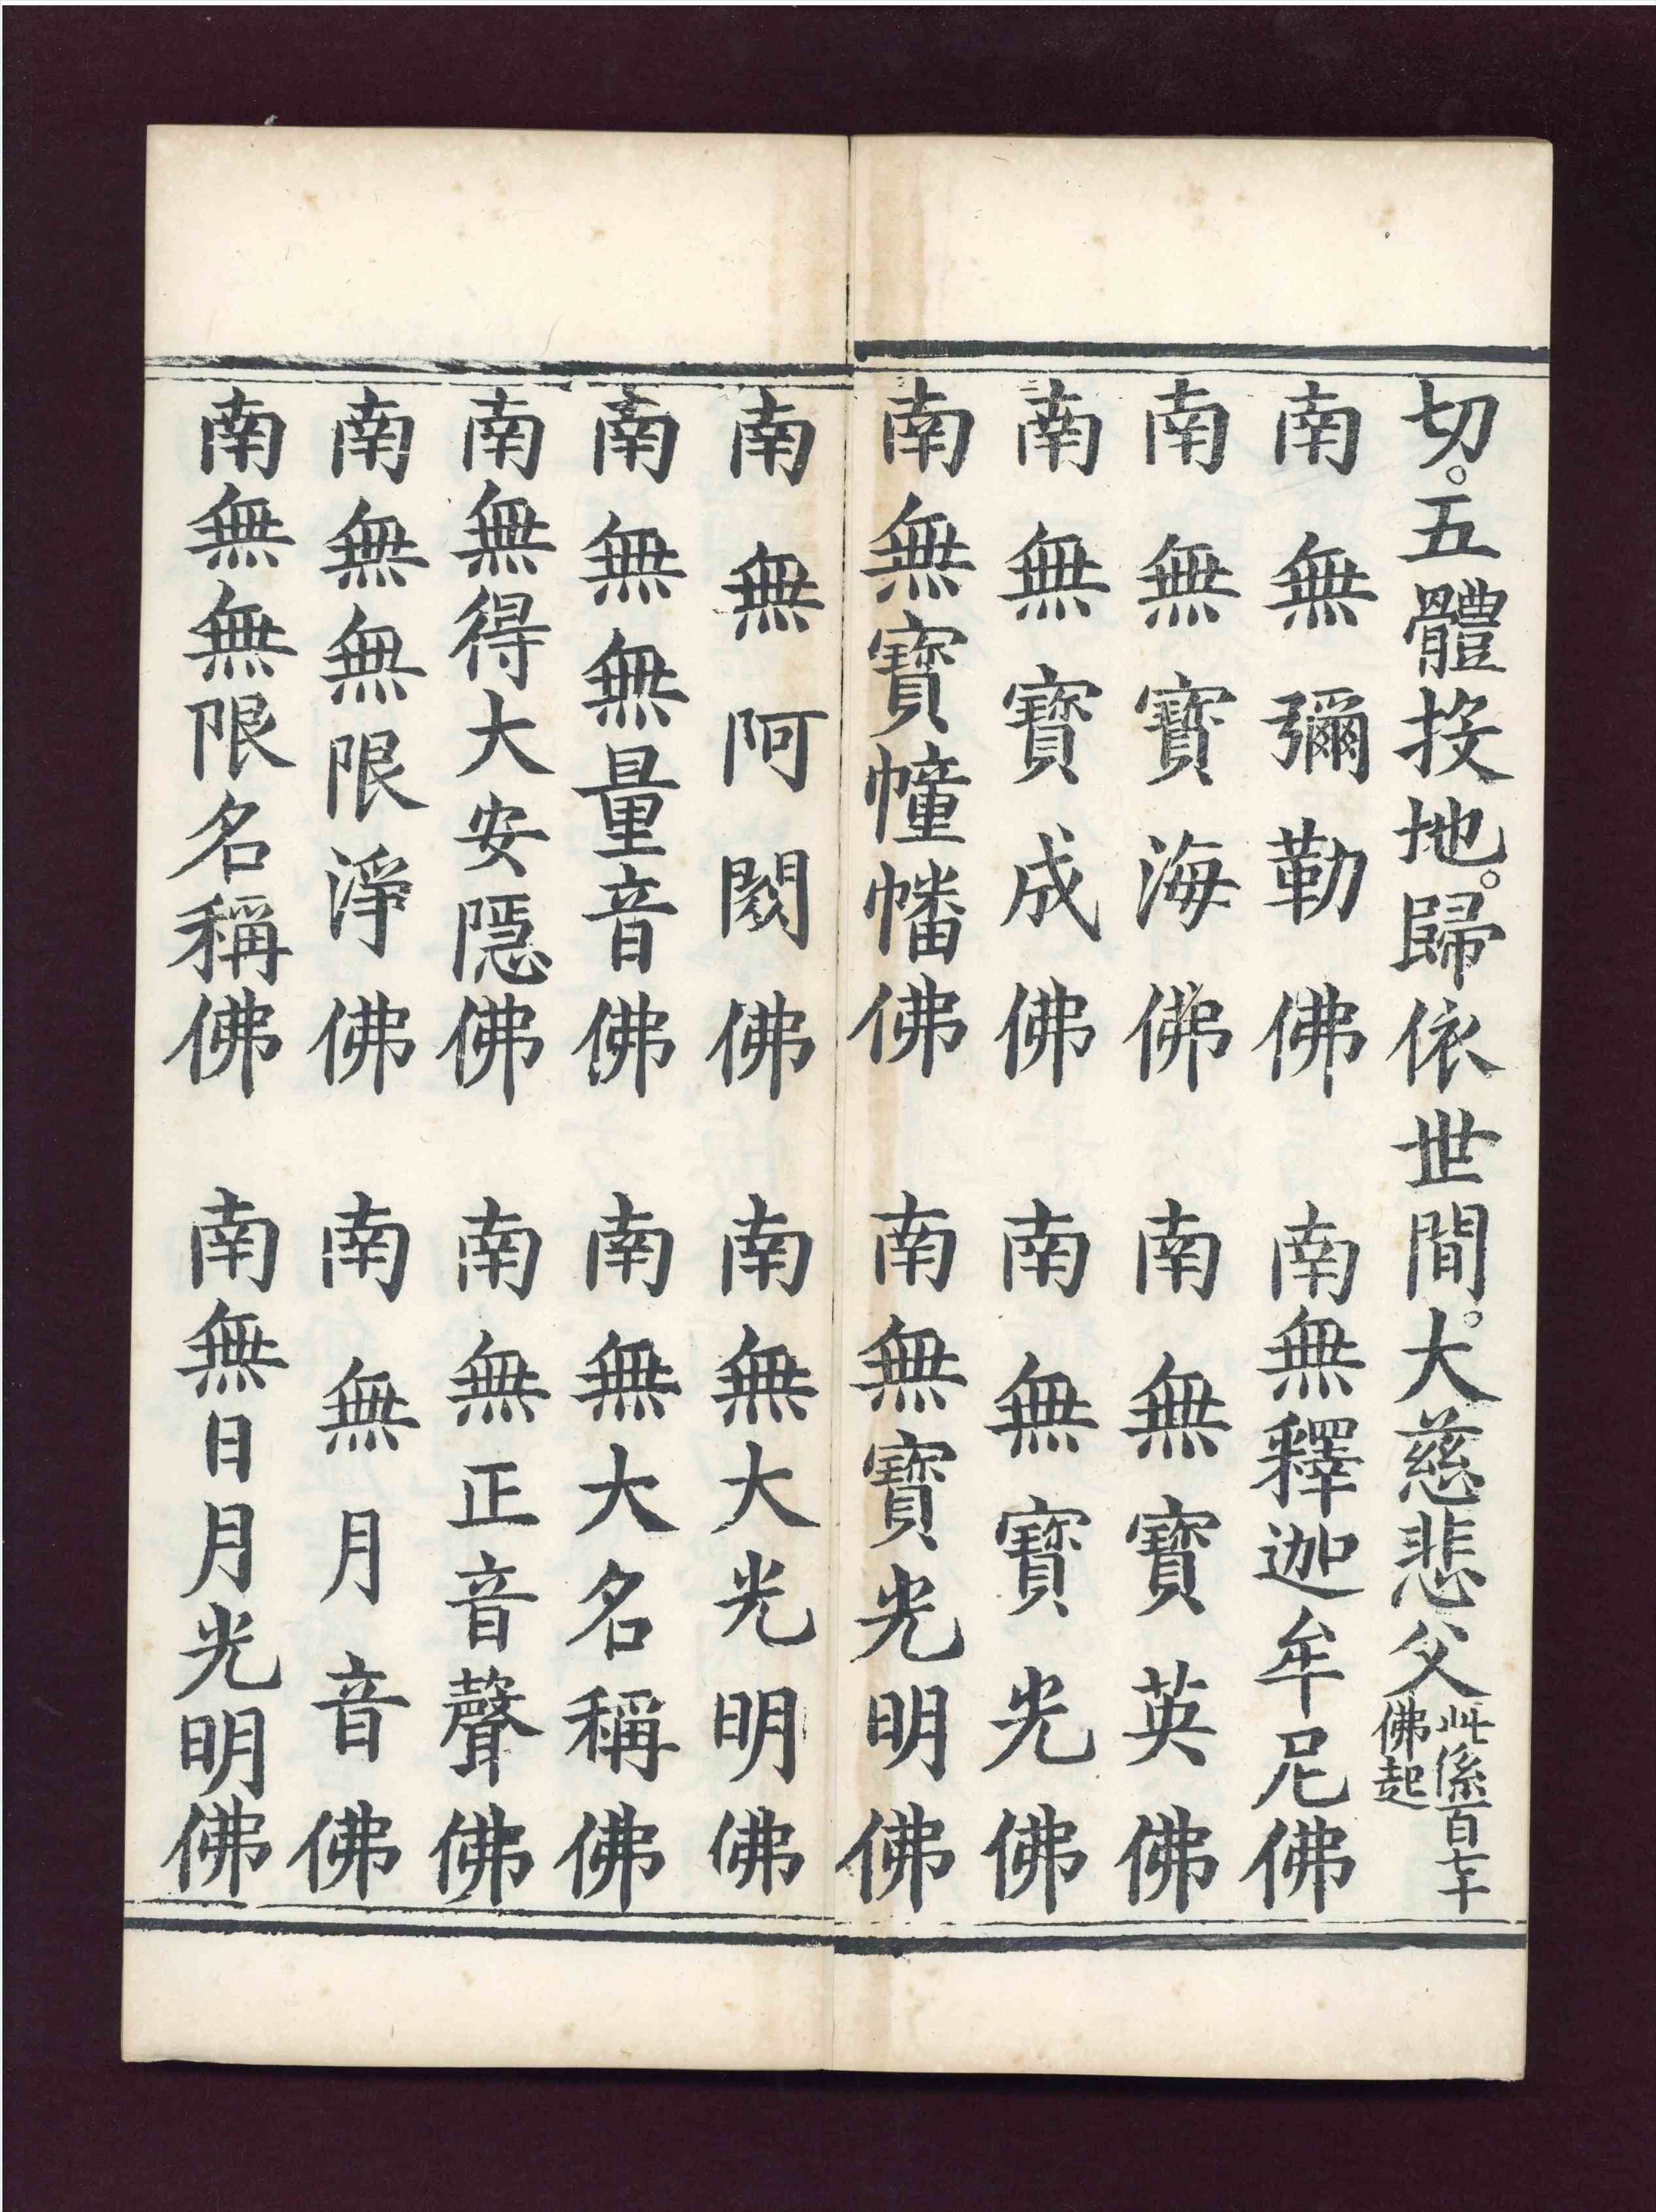 切。五體投地。歸依世間。大慈悲父此係百七十佛起
南無彌勒佛　南無釋迦牟尼佛
南無寶海佛　南無寶英佛
南無寶成佛　南無寶光佛
南無寶幢幡佛　南無寶光明佛
南無阿閦佛　南無大光明佛
南無無量音佛　南無大名稱佛
南無得大安隱佛　南無正音聲佛
南無無限淨佛　南無月音佛
南無無限名稱佛　南無日月光明佛